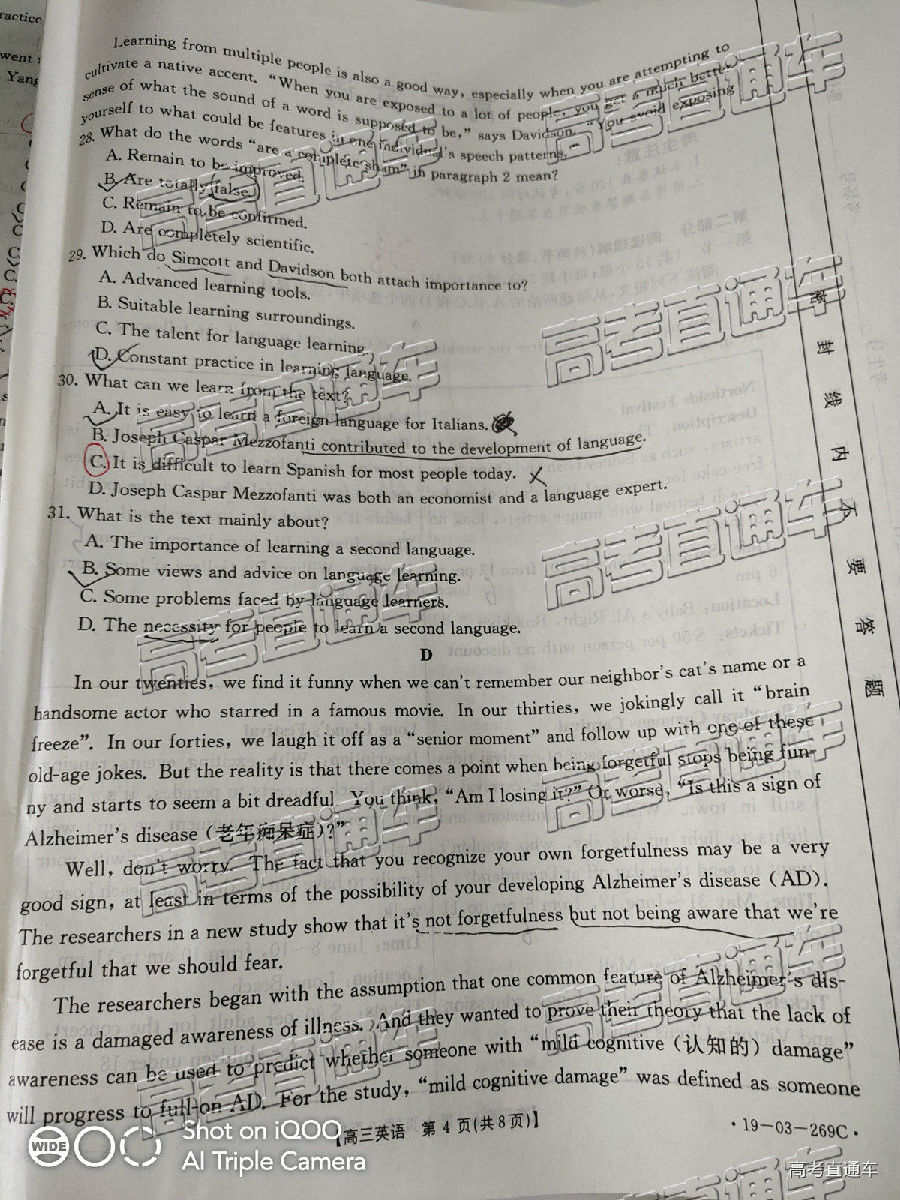 ractice
went
Yang
Learning from multiple people is also a good way, especially when you are attempting to
cultivate a native accent. “When you are exposed to a lot of people, you get a much better
sense of what the sound of a word is supposed to be,” says Davidson. “You avoid exposing
yourself to what could be features in one individual's speech patterns.
28. What do the words “are a complete sham” in paragraph 2 mean?
A. Remain to be improved.
B. Are totally false.
C. Remain to be confirmed.
D. Are completely scientific.
29. Which do Simcott and Davidson both attach importance to?
A. Advanced learning tools.
B. Suitable learning surroundings.
C. The talent for language learning.
D. Constant practice in learning language.
30. What can we learn from the text?
A. It is easy to learn a foreign language for Italians.
B. Joseph Caspar Mezzofanti contributed to the development of language.
C. It is difficult to learn Spanish for most people today.
D. Joseph Caspar Mezzofanti was both an economist and a language expert.
31. What is the text mainly about?
A. The importance of learning a second language.
B. Some views and advice on language learning.
C. Some problems faced by language learners.
D. The necessity for people to learn a second language.
D
In our twenties, we find it funny when we can't remember our neighbor's cat's name or a
handsome actor who starred in a famous movie. In our thirties, we jokingly call it “brain
freeze”. In our forties, we laugh it off as a “senior moment” and follow up with one of these
old-age jokes. But the reality is that there comes a point when being forgetful stops being fun-
ny and starts to seem a bit dreadful. You think, “Am I losing it?” Or worse, “Is this a sign of
Alzheimer's disease (老年痴呆症)?”
Well, don't worry. The fact that you recognize your own forgetfulness may be a very
good sign, at least in terms of the possibility of your developing Alzheimer's disease (AD).
The researchers in a new study show that it's not forgetfulness but not being aware that we're
forgetful that we should fear.
The researchers began with the assumption that one common feature of Alzheimer's dis-
ease is a damaged awareness of illness. And they wanted to prove their theory that the lack of
awareness can be used to predict whether someone with “mild cognitive (认知的) damage”
will progress to full-on AD. For the study, “mild cognitive damage” was defined as someone
【高三英语 第 4 页(共 8 页)】
·19-03-269C·
密 封 线 内 不 要 答 题
高考直通车
高考直通车
高考直通车
高考直通车
高考直通车
高考直通车
高考直通车
高考直通车
高考直通车
高考直通车
WIDE
Shot on iQOO
AI Triple Camera
高考直通车